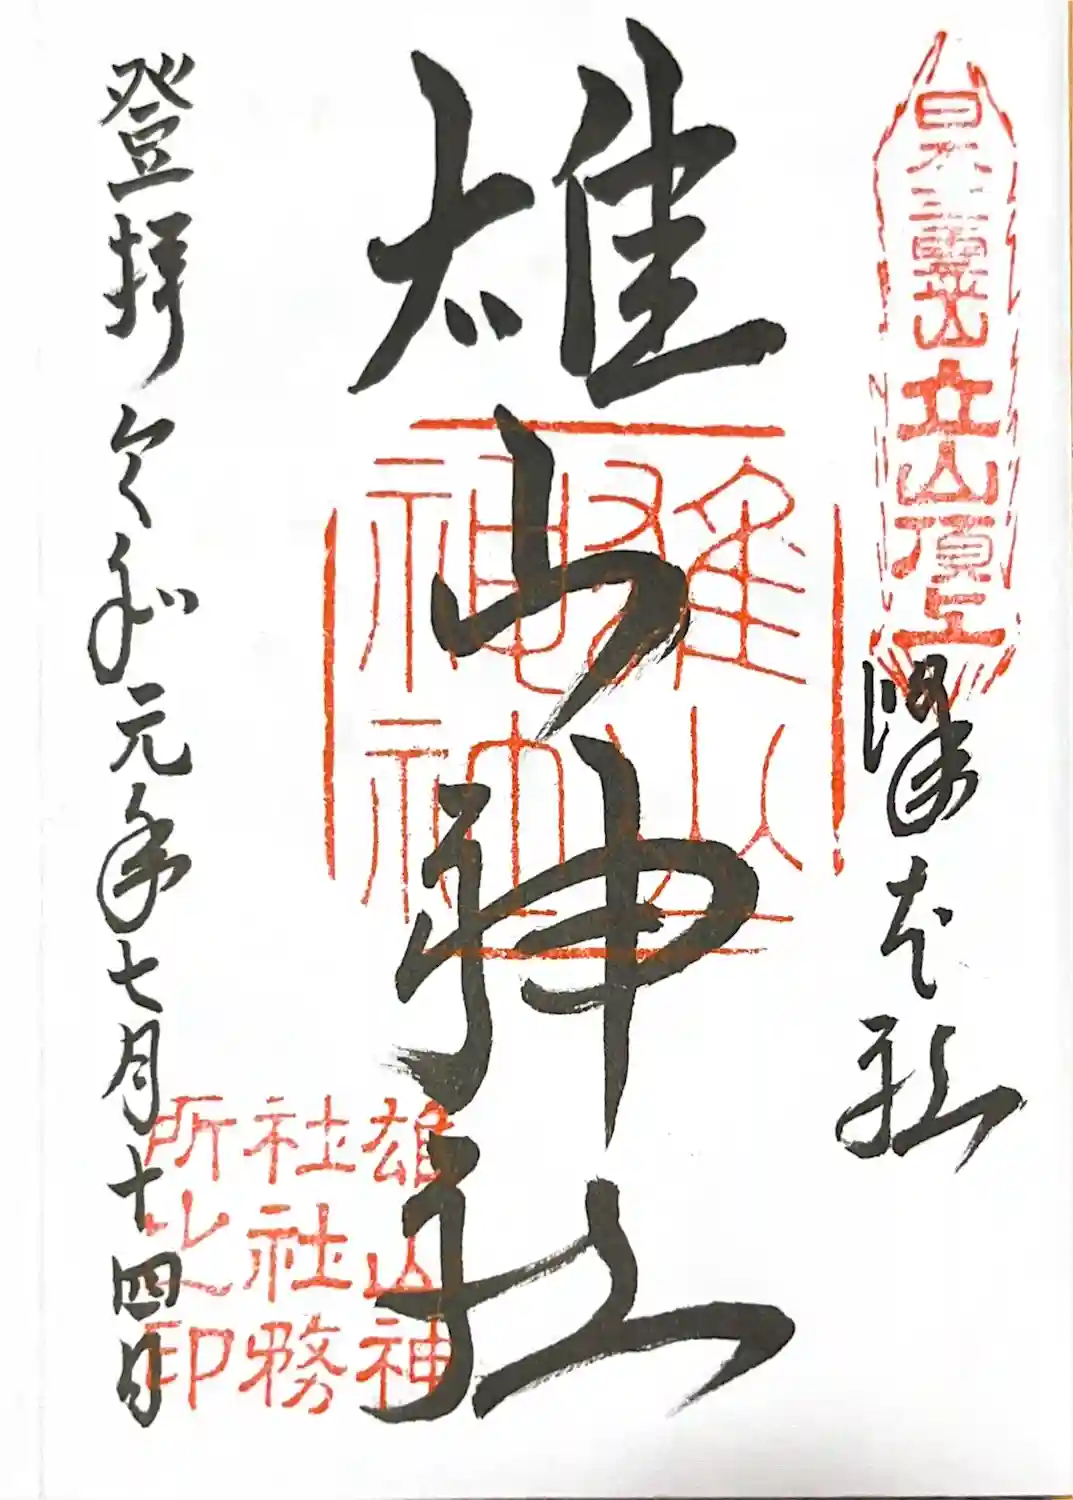 日本三霊山立山頂上
峰本社
雄山神社
雄山神
社社務
所之印
登拝 令和元年七月十四日